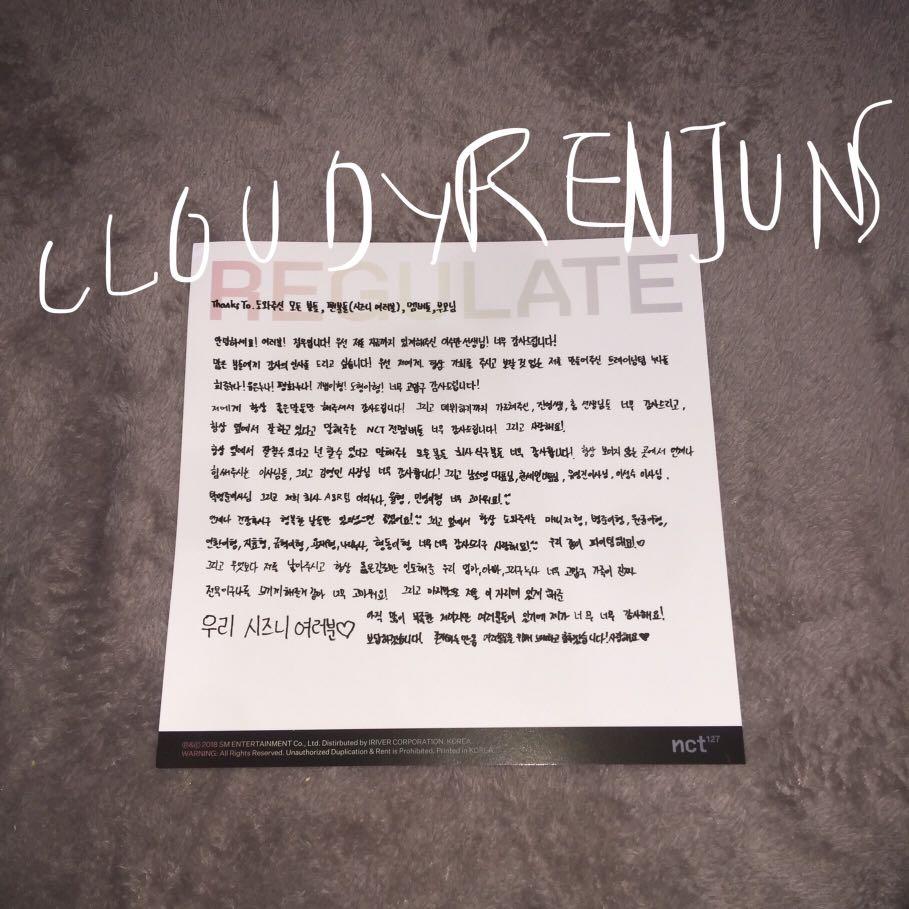 CLOUDYRENJUNS
REGULATE
Thanks To. 도와주신 모든 분들, 팬분들(시즈니 여러분), 멤버들, 부모님
안녕하세요! 여러분! 정우입니다! 우선 저를 지금까지 있게해주신 이수만 선생님! 너무 감사드립니다!
많은 분들에게 감사의 인사를 드리고 싶습니다! 우선 저에게 항상 기회를 주시고 보잘 것 없는 저를 만들어주신 트레이닝팀 누나들
희준누나! 누나! 평화누나! 도형이형! 너무 고맙구 감사드립니다!
저에게 항상 좋은말들만 해주셔서 감사드립니다! 그리고 데뷔하기까지 가르쳐주신, 선생님들 너무 감사드리고,
항상 옆에서 잘하고 있다고 말해주는 NCT 전멤버들 너무 감사드립니다! 그리고 사랑해요!
항상 옆에서 잘할수 있다고 넌 할수 있다고 말해주는 모든 분들 회사 식구분들 너무 감사합니다! 항상 보이지 않는 곳에서 언제나
힘써주시는 이사님들, 그리고 김영민 사장님 너무 감사합니다! 그리고 남소영 대표님, 한세민대표님, 이사님, 이성수 이사님,
그리고 저희 회사 A&R팀 누나, 형, 형 너무 고마워요!
언제나 건강하시구 행복한 날들만 있었으면 좋겠어요! 그리고 옆에서 항상 도와주시는 매니저형,
너무너무 감사드리구 사랑해요! 우리 같이 파이팅해요!♡
그리고 무엇보다 저를 낳아주시고 항상 옳은길로만 인도해준 우리 엄마, 아빠, 그리구 누나 너무 고맙구 가족이 진짜
전부이구나를 느끼게 해준거 같아 너무 고마워요! 그리고 마지막으로 저를 이 자리에 있게 해준
우리 시즈니 여러분♡
아직 많이 부족한 저이지만 여러분들이 있기에 제가 너무 너무 감사해요!
보답하겠습니다. 여러분들을 위해 노력하고 습니다! 사랑해요♥
℗&© 2018 SM ENTERTAINMENT Co., Ltd. Distributed by IRIVER CORPORATION. KOREA.
WARNING: All Rights Reserved. Unauthorized Duplication & Rent is Prohibited, Printed in KOREA.
nct127